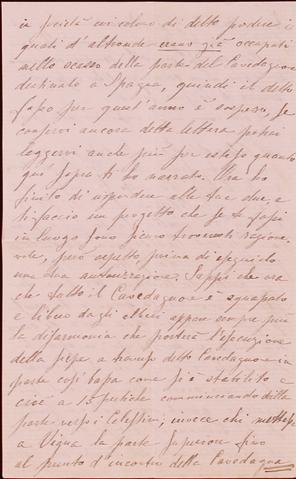 in società coi coloni di detto podere i
quali d'altronde erano già occupati
nello scasso della parte del Cavedagnone
destinato a Spagna, quindi il detto
fosso per quest'anno è sospeso. Se
conservi ancora detta lettera potrai
leggervi anche più per esteso quanto
qui sopra ti ho narrato. Ora ho
finito di rispondere alle tue due, e
ti faccio un progetto che se tu fossi
in luogo sono sicuro troveresti ragione-
vole, però aspetto prima di eseguirlo
una tua autorizzazione. Sappi che ora
che tutto il Cavedagnone è
e libero dagli alberi appare sempre più
la disarmonia che porterà l'esecuzione
della siepe a detto Cavedagnone in
parte così come si è stabilito e
cioè a 15 pertiche cominciando dalla
parte verso i Celestini; invece che mettesse
a Vigna la parte superiore fino
al punto d'incontro della Cavedagna